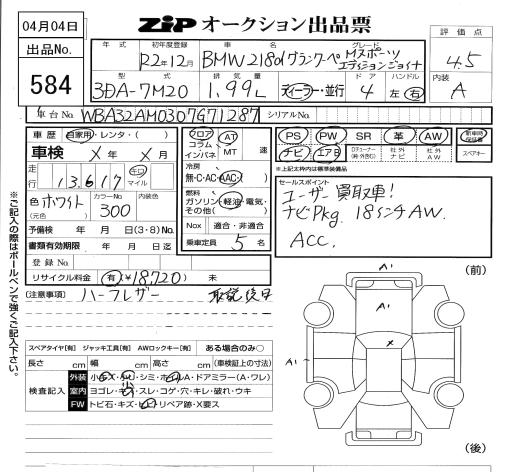 04月04日
ZIP オークション出品票
出品No.
584
評価点
4.5
内装
A
年式 初年度登録 車名 グレード
R2年12月 BMW218dグランクーペ Mスポーツ
エディションジョイ+
型式 排気量 ドア ハンドル
3DA-7M20 1,99L ディーラー・並行 4 左 右
車台No. WBA32AM0307G71287 シリアルNo.
車歴 自家用・レンタ・( )
車検 X年 X月
走行 13,617 キロ マイル
色 ホワイト (元色) カラーNo. 300 内装色
予備検 年 月 日(3・8)No.
書類有効期限 年 月 日迄
登録No.
リサイクル料金 有(¥18,720) 未
フロア コラム インパネ AT MT 速
冷房 無・C・AC・AAC
燃料 ガソリン・軽油・電気・その他( )
Nox 適合・非適合
乗車定員 5 名
PS PW SR 革 AW 新車時保証書
ナビ エアB 社外ナビ 社外AW スペアキー
※上記枠内は標準装備品
セールスポイント
ユーザー買取車!
ナビPkg. 18インチAW.
ACC.
※ご記入の際はボールペンで強くご記入下さい。
(注意事項) ハーフレザー 取説後日
スペアタイヤ[有] ジャッキ工具[有] AWロックキー[有] ある場合のみ○
長さ cm 幅 cm 高さ cm (車検証上の寸法)
検査記入
外装 A・ドアミラー(A・ワレ)
室内 ヨゴレ スレ・コゲ・穴・キレ・破れ・ウキ
FW トビ石・キズ・ヒビ・リペア跡・X要ス
(前)
A1
A1
X
A1
(後)